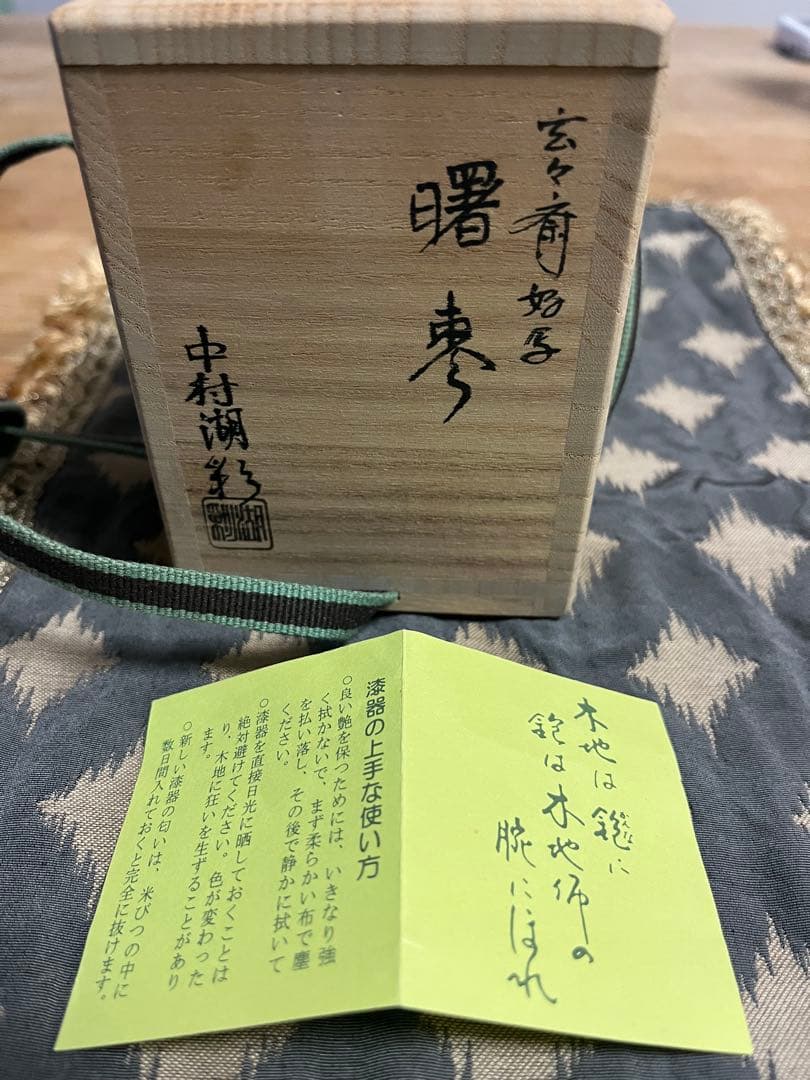 玄々斎好写
曙棗
中村湖彩
湖彩
木地は鉋に
かんな
鉋は木地師の
腕にほれ
漆器の上手な使い方
○良い艶を保つためには、いきなり強
く拭かないで、まず柔らかい布で塵
を払い落し、その後で静かに拭いて
ください。
○漆器を直接日光に晒しておくことは
絶対避けてください。色が変わった
り、木地に狂いを生ずることがあり
ます。
○新しい漆器の匂いは、米びつの中に
数日間入れておくと完全に抜けます。